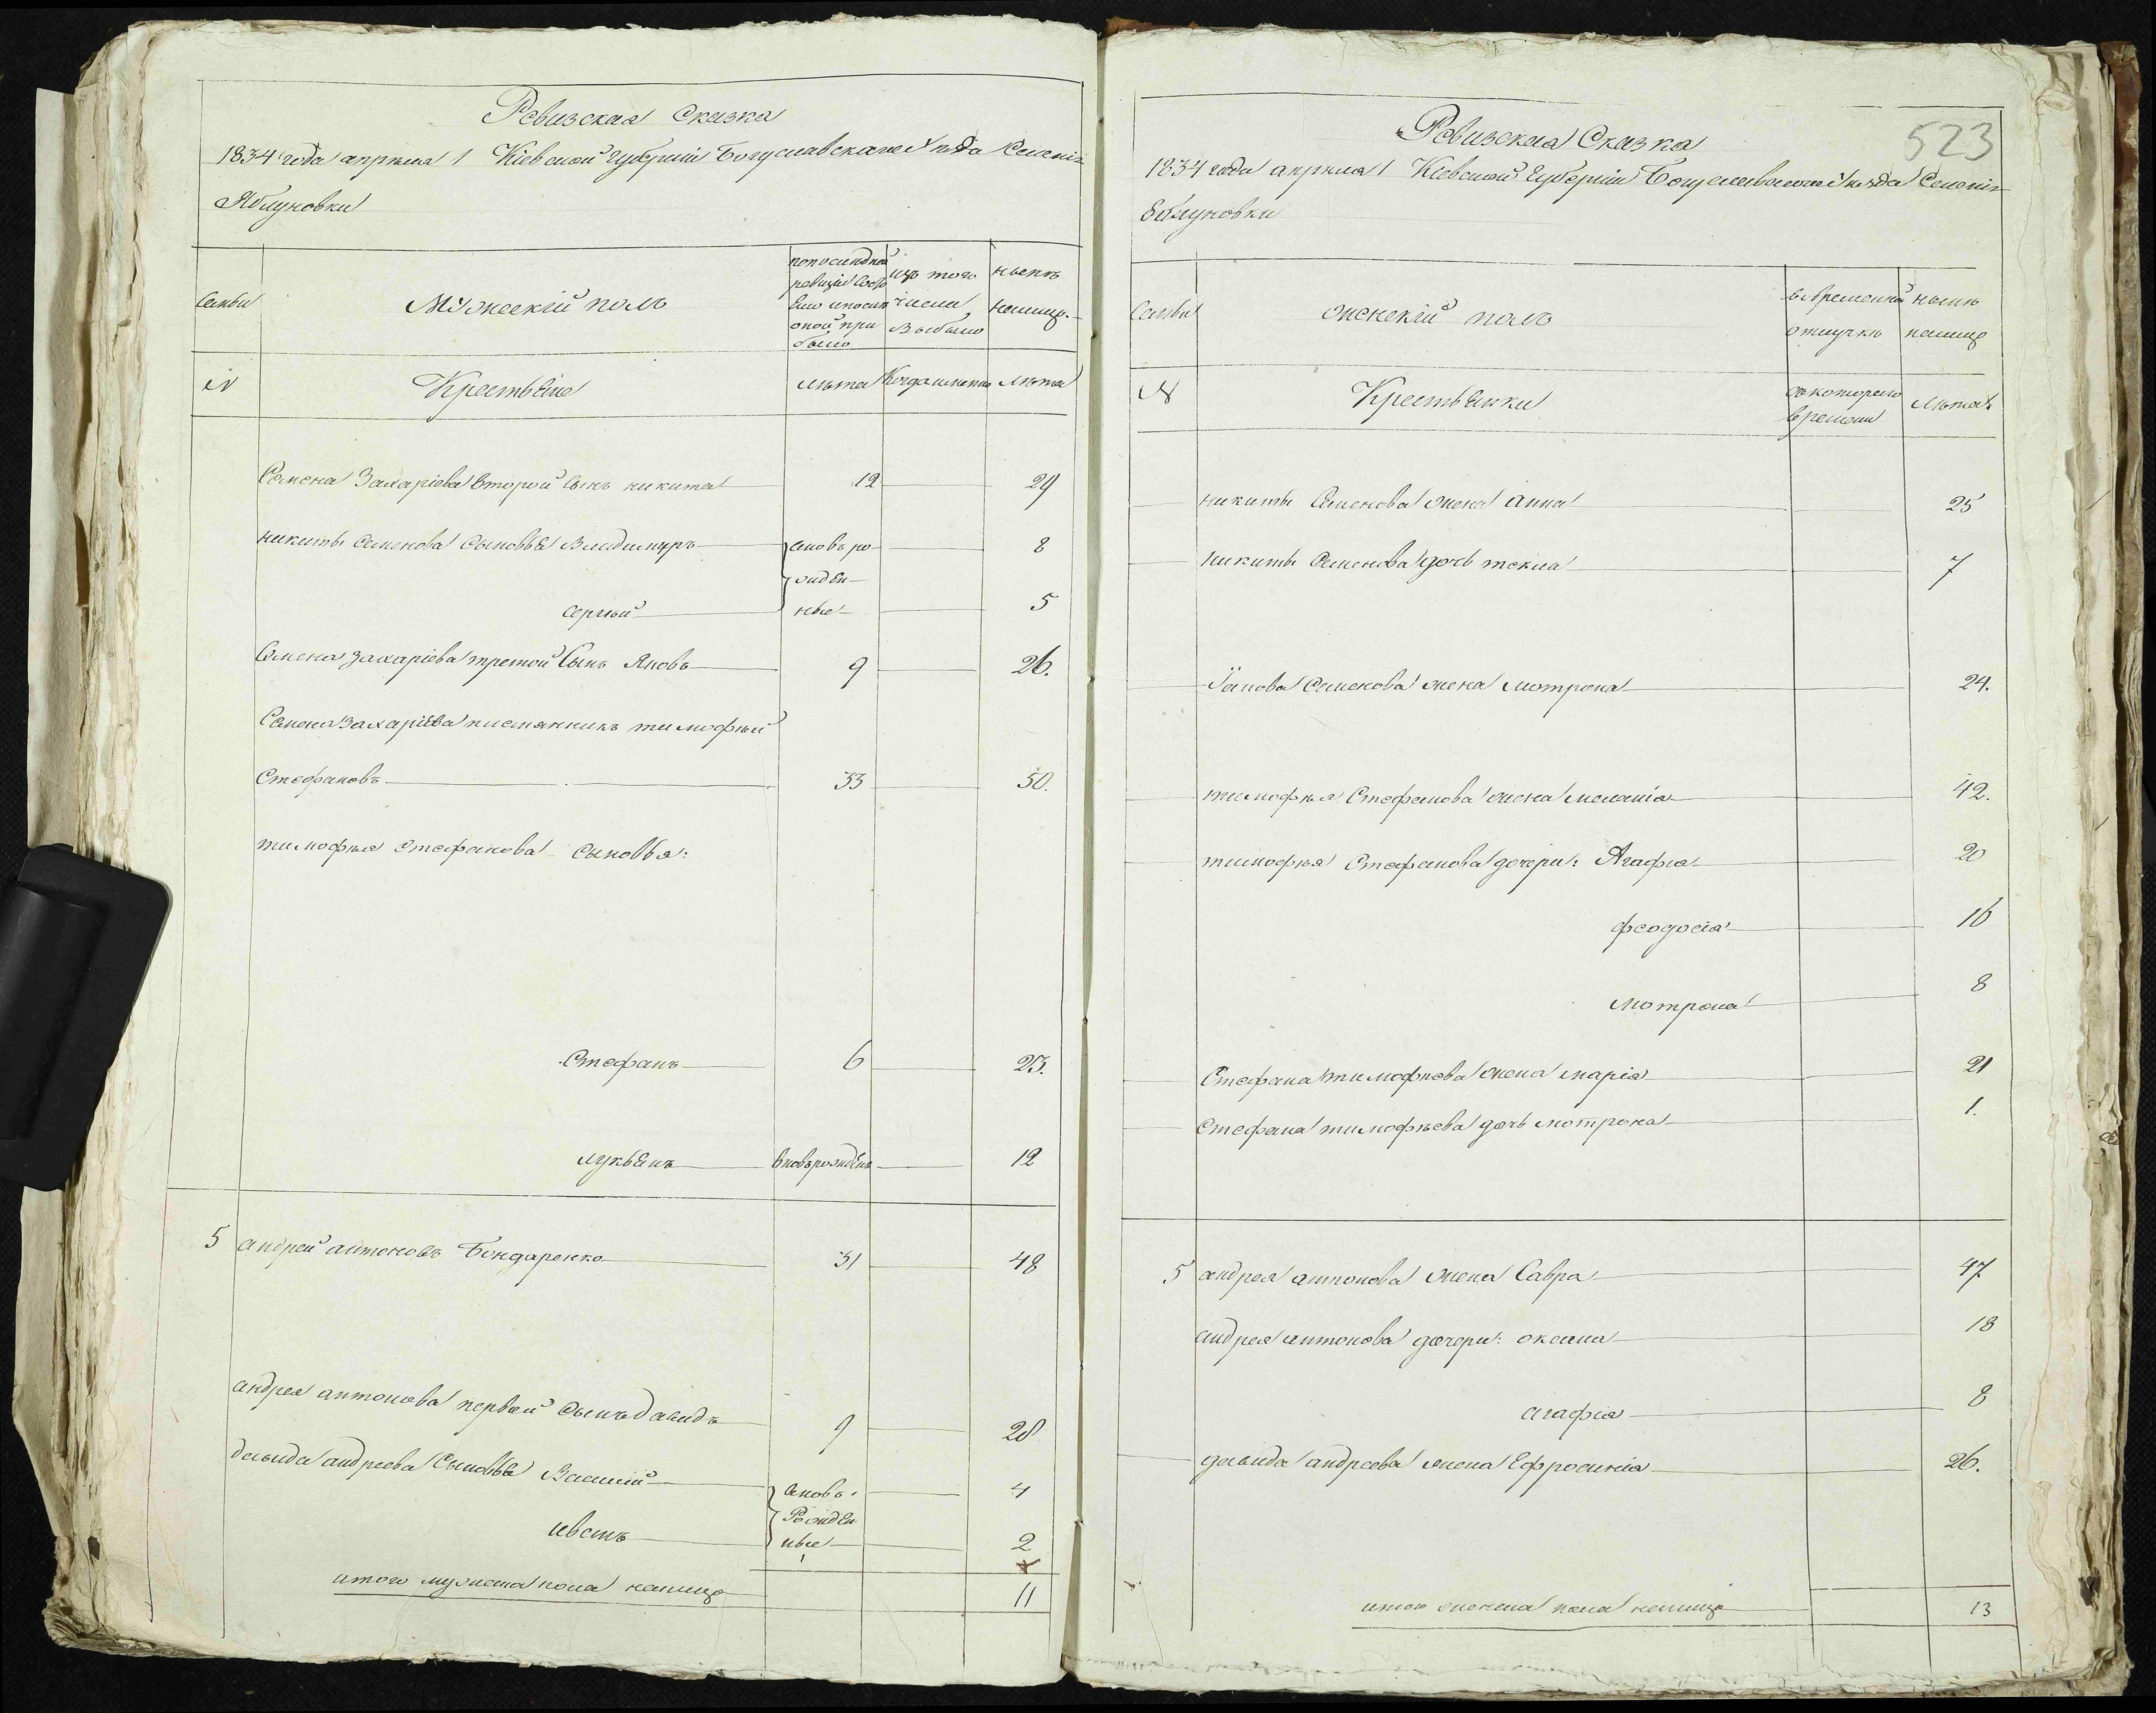 Ревизская Сказка
1834 года апреля 1 Кіевской губерніи Богуславскаго уѣзда Селеніе
Яблуновки
Семьи
Мужескій полъ
по последней ревизіи состояло и после оной прибыло
изъ того числа выбыло
ныне на лицо
N
Крестьяне
лѣта
Когда именно
лѣта
Семена Захаріева второй Сынъ никита 12 29
никиты Семенова Сыновья Владимиръ вновь ро- 8
жден-
Сергѣй ные 5
Семена Захаріева третой Сынъ Яковъ 9 26.
Семена Захаріева племянникъ тимофѣй
Стефановъ 33 50.
тимофѣя Стефанова Сыновья:
Стефанъ 6 23.
лукьянъ вновь рожденъ 12
5 андрей антоновъ Бондаренко 31 48
андрея антонова первой Сынъ давидъ 9 28
давида андреева Сыновья Василій вновь 4
Рожден
иванъ ные 2
итого мужеска пола налицо 11
523
Ревизская Сказка
1834 года апреля 1 Кіевской Губерніи Богуславскаго уѣзда Селеніе
Еблуновки
Семьи
женскій полъ
во временной отлучкѣ
ныне налицо
N
Крестьянки
съ котораго времени
лѣта
никиты Семенова жена анна 25
никиты Семенова дочь текла 7
Іакова Семенова жена мотрона 24.
тимофѣя Стефанова жена меланіа 42.
тимофѣя Стефанова дочери: Агафіа 20
феодосіа 16
мотрона 8
Стефана тимофѣева жена маріа 21
Стефана тимофѣева дочь мотрона 1.
5 андрея антонова жена Савра 47
андрея антонова дочери: оксана 18
агафіа 8
давида андреева жена Ефросиніа 26.
итого женска пола налицо 13